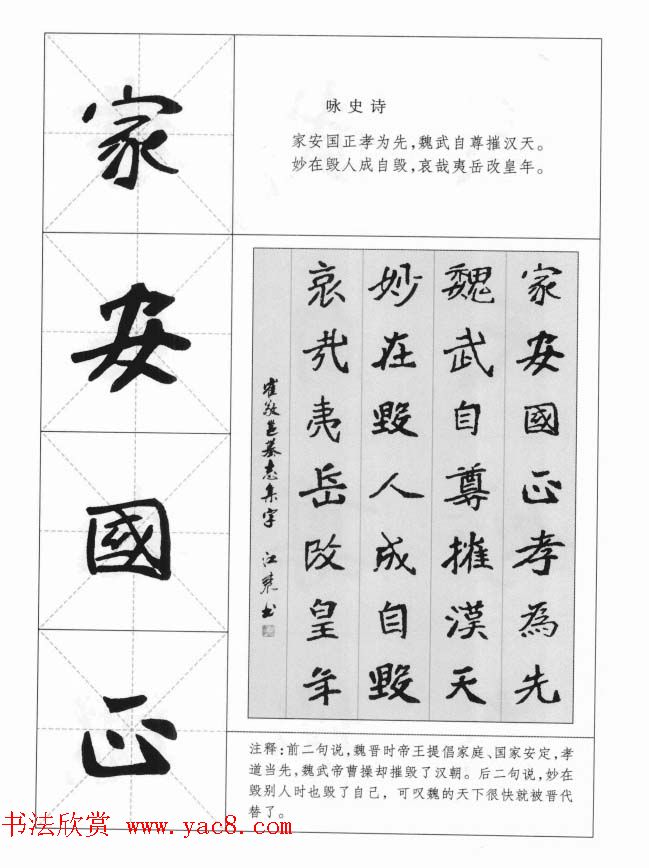 家
安
國
正
咏史诗
家安国正孝为先，魏武自尊摧汉天。
妙在毁人成自毁，哀哉夷岳改皇年。
家安國正孝為先
魏武自尊摧漢天
妙在毀人成自毀
哀哉夷岳改皇年
崔敬邕墓志集字 江 书
注释：前二句说，魏晋时帝王提倡家庭、国家安定，孝
道当先，魏武帝曹操却摧毁了汉朝。后二句说，妙在
毁别人时也毁了自己，可叹魏的天下很快就被晋代
替了。
书法欣赏 www.yac8.com